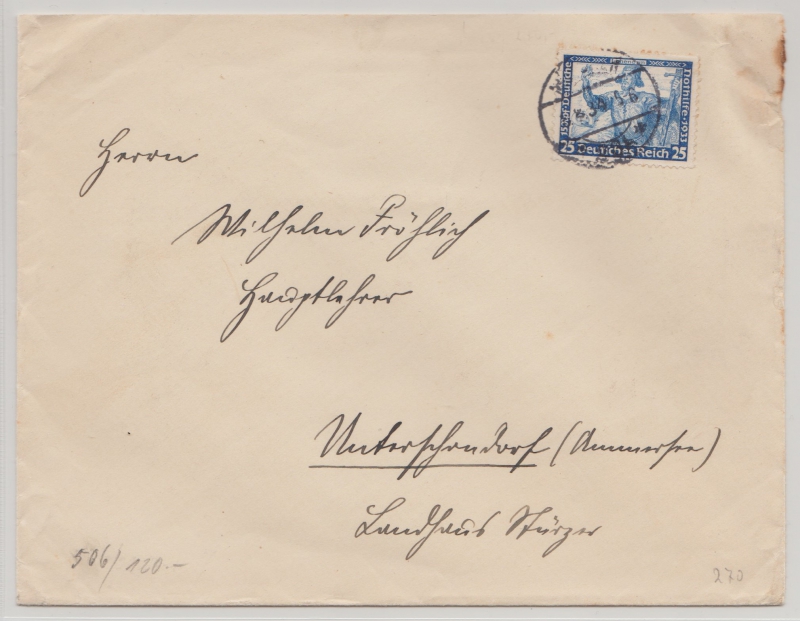 15 Pf-Deutsche Nothilfe-1933
25 Deutsches Reich 25
Herrn
Wilhelm Fröhlich
Hauptlehrer
Unterschondorf (Ammersee)
Landhaus Stürzer
506/120.-
270